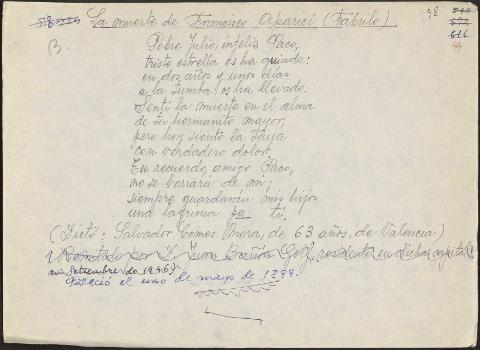 La muerte de Francisco Aparici (Fabrilo)
98
B.
Pobre Julio, infeliz Paco,
triste estrella os ha guiado:
en dos años y unos días
a la tumba os ha llevado.
Sentí la muerte en el alma
de tu hermanito mayor,
pero hoy siento la tuya
con verdadero dolor.
Tu recuerdo, amigo Paco,
no se borrará de mí;
siempre guardarán mis hijos
una lágrima pa tí.
(Dictó: Salvador Comes Mora, de 63 años, de Valencia)
Remitido por D. Juan residente en dicha capital
en Setiembre de 1946)
Falleció el uno de mayo de 1899.